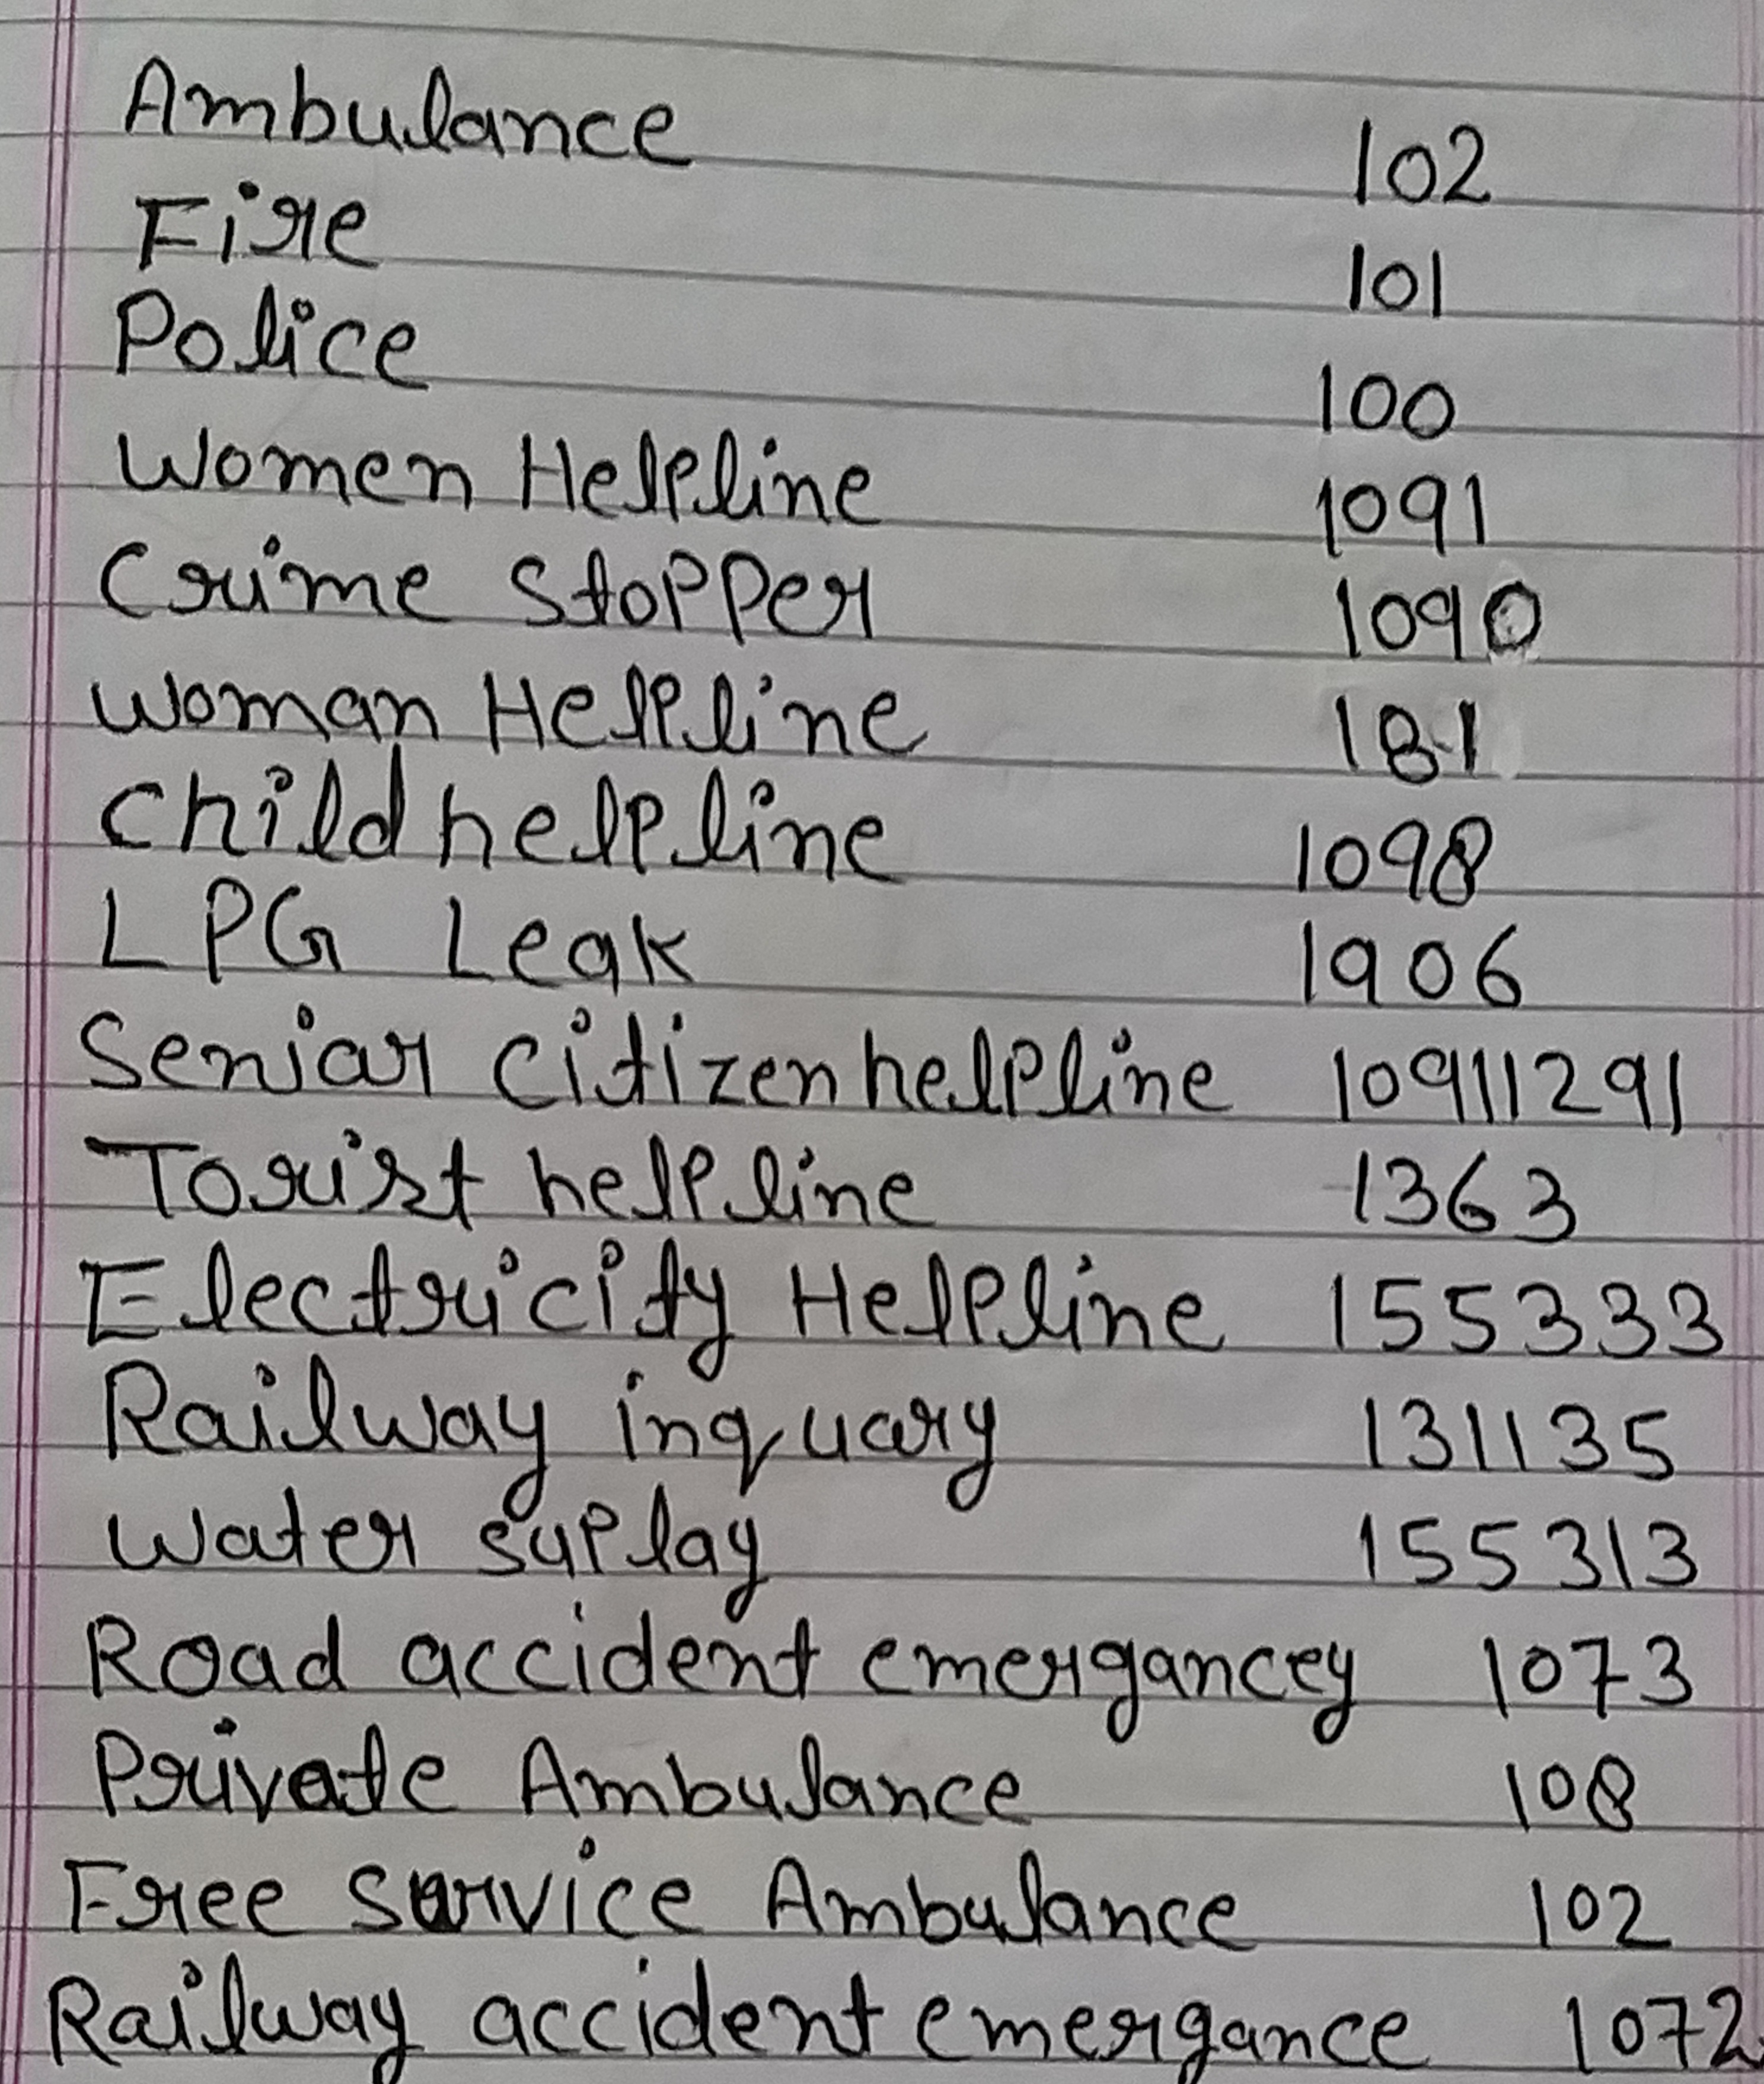 Ambulance 102
Fire 101
Police 100
Women Helpline 1091
Crime Stopper 1090
Woman Helpline 181
Child helpline 1098
LPG Leak 1906
Seniar citizen helpline 10911291
Torist helpline 1363
Electricity Helpline 155333
Railway inquary 131135
Water suplay 155313
Road accident emergancey 1073
Private Ambulance 108
Free survice Ambulance 102
Railway accident emergance 1072